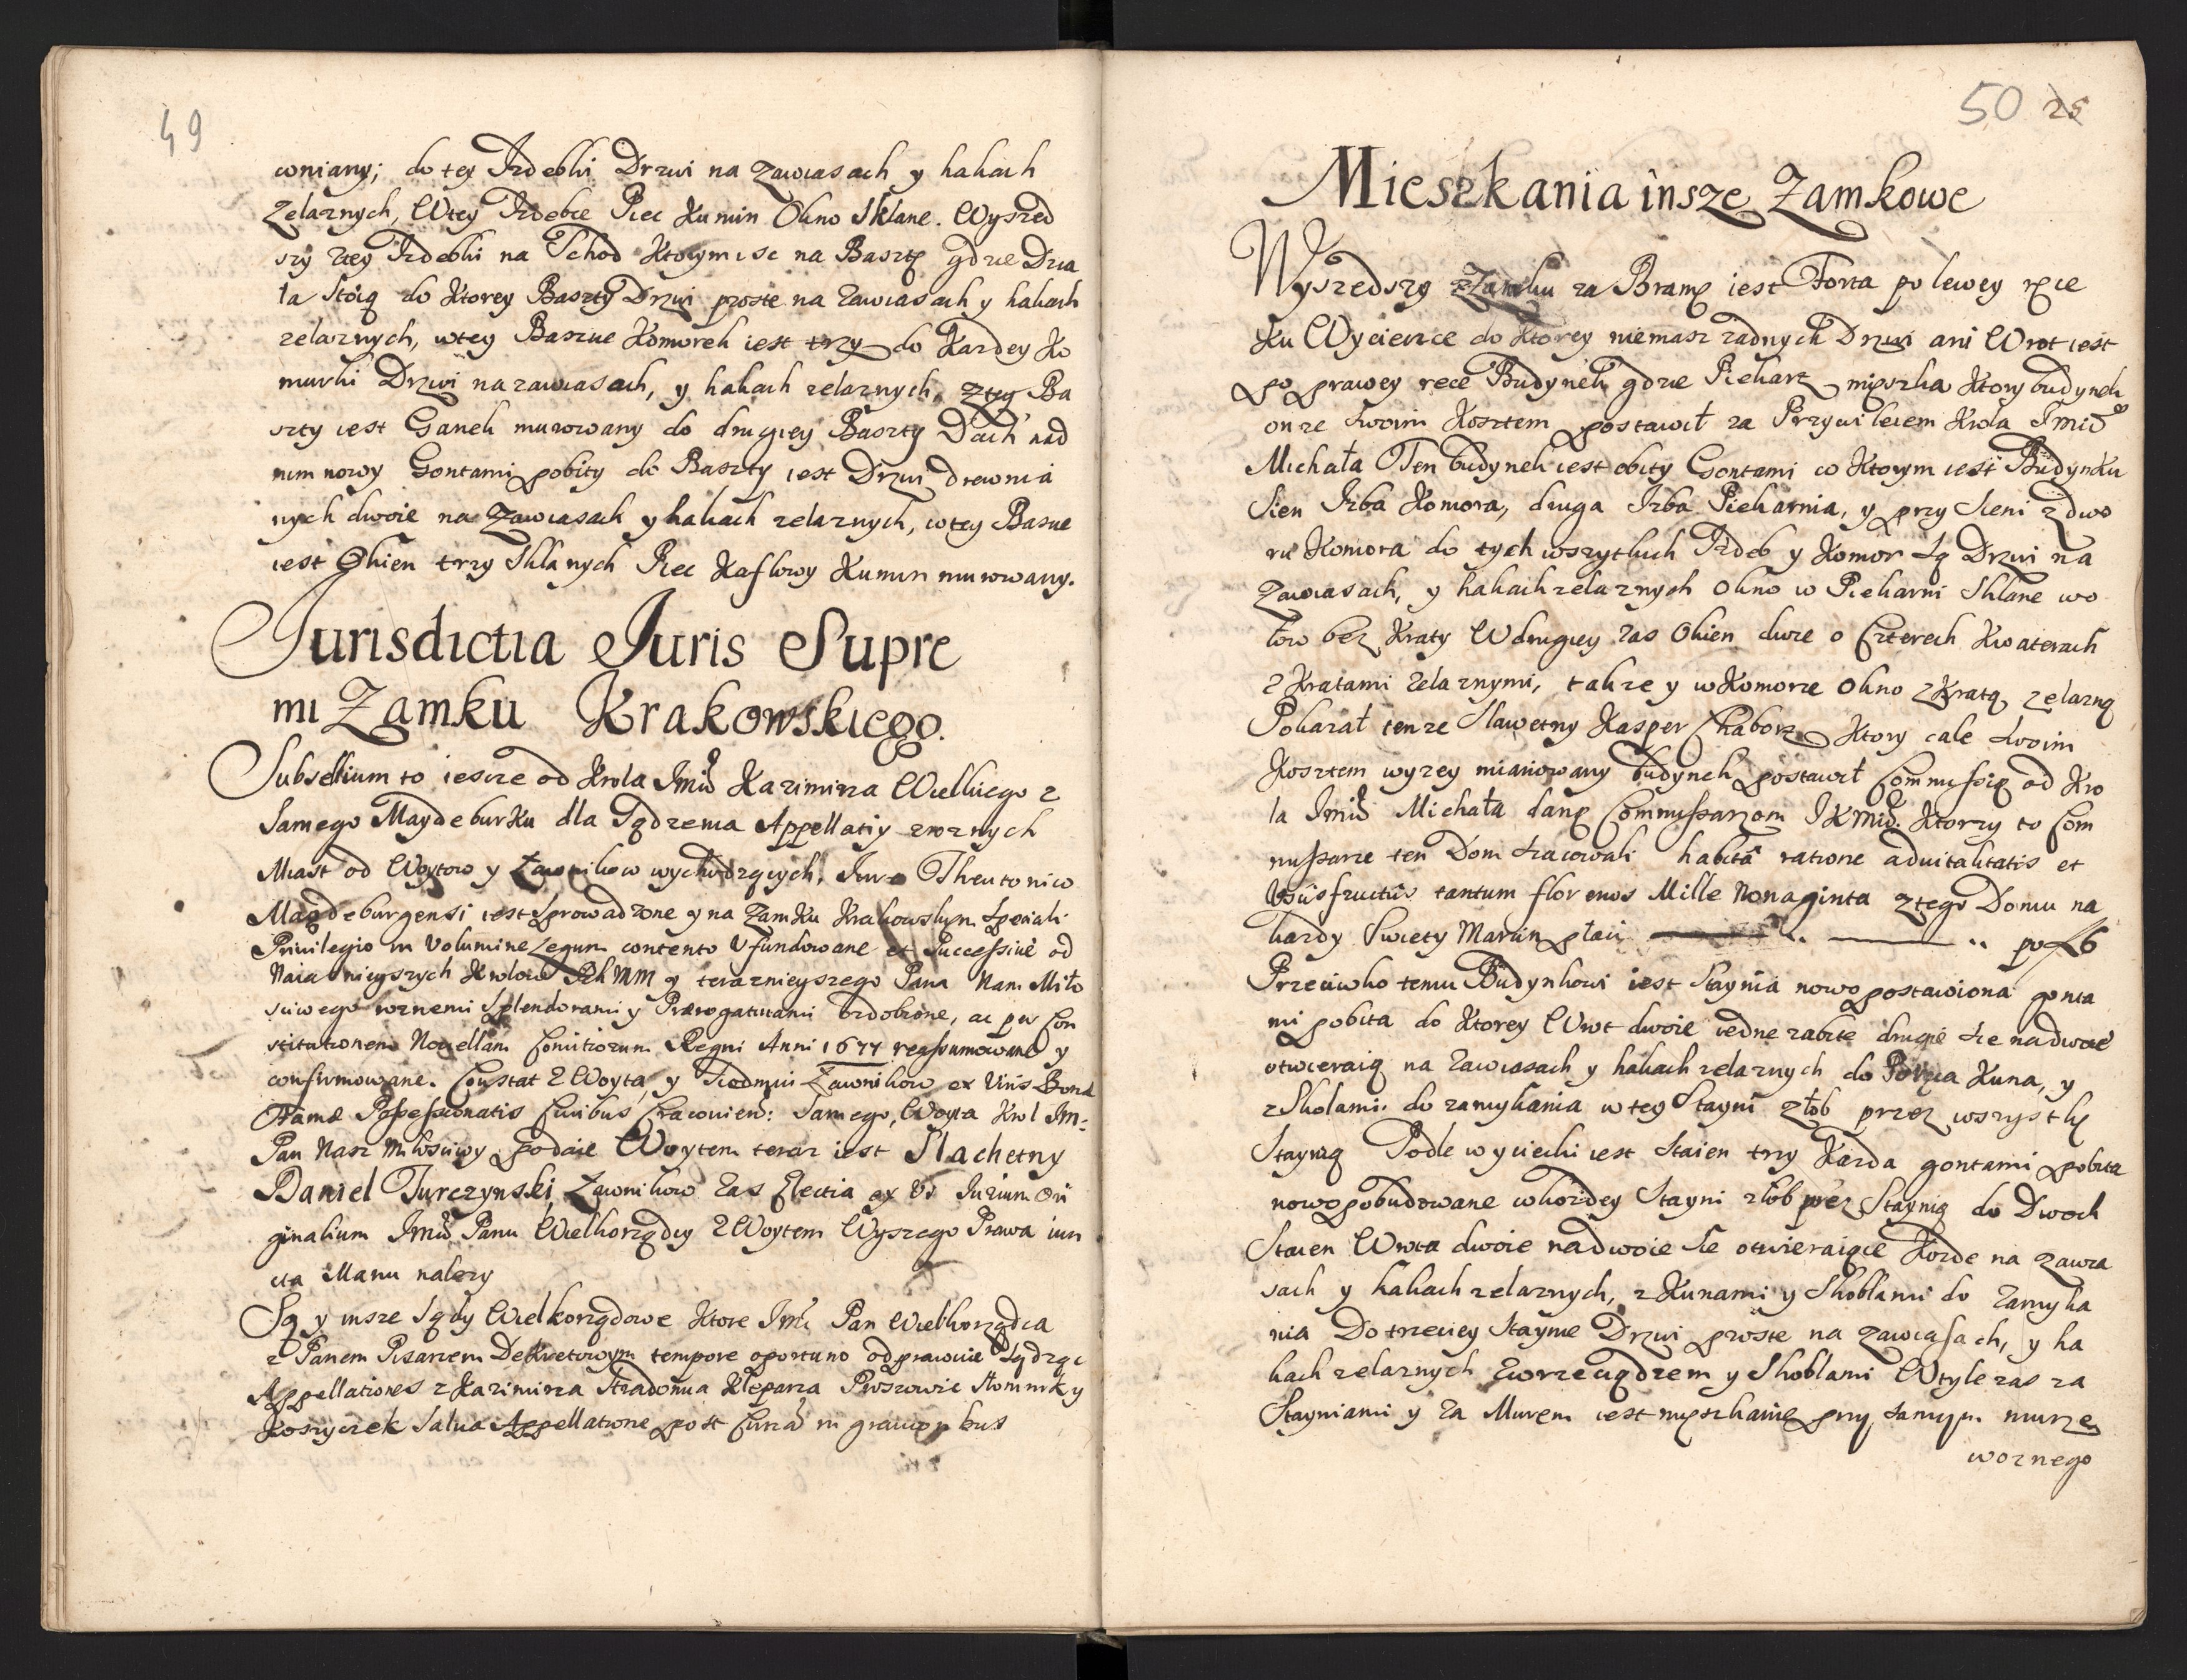 49
wniany; do tey Izdebki Drzwi na Zawiasach y hakach
Zelaznych, Wtey Izdebce Piec Kumin Okno Sklane. Wyszed
szy ztey Izdebki na Schod Ktorym isc na Basztę gdzie Dzia
ła Stoią do Ktorey Baszty Drzwi proste na Zawiasach y hakach
zelaznych, wtey Baszcie Komorek iest trzy do Kazdey Ko
murki Drzwi nazawiasach, y hakach zelaznych, ztey Ba
szty iest Ganek murowany do drugiey Baszty Dach nad
nim nowy Gontami pobity do Baszty iest Drzwi drewnia
nych dwoie na Zawiasach y hakach zelaznych, wtey Baszcie
iest Okien trzy Sklanych Piec Kaflowy Kumin murowany.
Jurisdictia Juris Supre
mi Zamku Krakowskiego.
Subsellium to ieszcze od Krola Jmci Kazimirza Wielkiego z
Samego Maydeburku dla Sądzenia Appellatiy zroznych
Miast od Woytow y Ławnikow wychodzących, Jure Theutonico
Magdeburgensi iest Sprowadzone y na Zamku Krakowskym Speciali
Privilegio in Volumine Legum contento Vfundowane et Successive od
Naiasnieyszych Krolow PchMM y teraznieyszego Pana Nam Miło
sciwego roznemi Splendorami y Prærogatiuami ozdobione, ac per Con
stitutionem Nouellam Comitiorum Regni Anni 1677 reassumowane y
confirmowane. Constat z Woyta, y Siedmiu Ławnikow ex Viris Bonæ
Famæ Possessionatis Ciuibus Cracouien: Samego, Woyta Krol Jm:
Pan Nasz Miłosciwy podaie Woytem teraz iest Slachetny
Daniel Turczynski, Ławnikow Zas Electia ex Vi Jurium Ori
ginalium Jmci Panu Wielkorządcy z Woytem Wyszego Prawa iun
cta Manu nalezy
Są y insze Sądy Wielkorządowe Ktore Jmc Pan Wielkorządca
z Panem Pisarzem Dekretowym tempore oportuno odprawuie Sądząc
Appellationes z Kazimirza Stradomia Kleparza Proszowic Słomnik y
Koszyczek Salua Appellatione post Curiam in grauioribus
50 25
Mieszkania insze Zamkowe
Wyszedszy zZamku za Bramę iest Forta po lewey ręce
Ku Wycieczce do Ktorey niemasz zadnych Drzwi ani Wrot iest
po prawey rece Budynek gdzie Piekarz mięszka Ktory budynek
onze Swoim Kosztem postawił za Przywileiem Krola Jmci
Michała Ten budynek iest obity Gontami w Ktorym iest Budynku
Sien Izba Komora, druga Izba Piekarnia, y przy Sieni zdwo
ru Komora do tych wszytkich Izdeb y Komor są Drzwi na
Zawiasach, y hakach zelaznych Okno w Piekarni Sklane wo
łow bez Kraty Wdrugiey zas Okien dwie o Czterech Kwaterach
z Kratami Zelaznymi, takze y wKomorze Okno zKratą zelazną
Pokazał tenze Sławetny Kasper Chaborz Ktory cale swoim
Kosztem wyzey mianowany budynek postawił Commissią od Kro
la Jmci Michała danę Commissarzom JKMci. Ktorzy to Com
missarze ten Dom szacowali habita ratione aduitalitatis et
Vsusfructus tantum florenos Mille Nonaginta ztego Domu na
kazdy Swiety Marcin płaci po 6
Przeciwko temu Budynkowi iest Staynia nowo postawiona gonta
mi pobita do Ktorey Wrot dwoie iedne zabite drugie sie nadwoie
otwieraią na Zawiasach y hakach zelaznych do Kuna, y
zSkolami do zamykania wtey Stayni złob przez wszystkę
Staynią Podle wyciecki iest Staien trzy Kazda gontami pobita
nowo pobudowane wkozdey Stayni złob przez Staynią do Dwoch
Staien Wrota dwoie nadwoie sie otwieraiące Kozde na zawia
sach y hakach zelaznych, z Kunami y Skoblami do Zamyka
nia Do trzeciey Staynie Drzwi proste na zawiasach, y ha
kach zelaznych Zwrzeciądzem y Skoblami Wtyle zas za
Stayniami y Za Murem iest mięszkanie przy samym murze
woznego